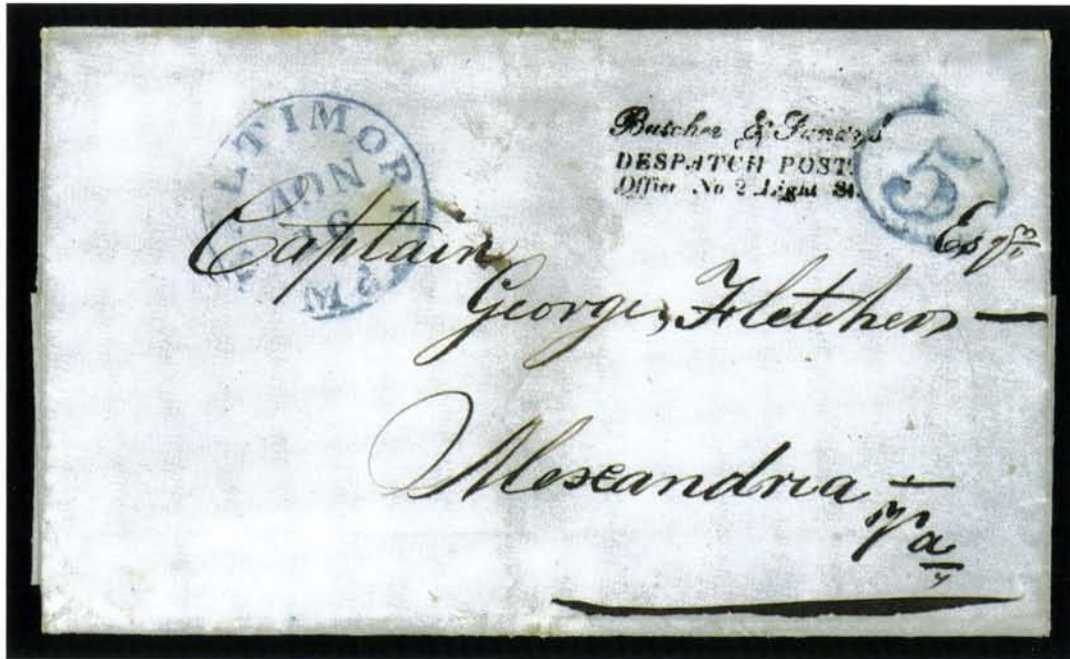 BALTIMORE
NOV
16
Md.
Butcher & Fundys'
DESPATCH POST.
Office No 2 Light St.
5
Captain
Esqr
George Fletcher
Alexandria
Va